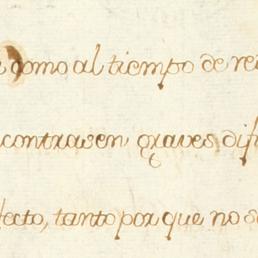 como al tiempo de re
contrasen graves dif
fecto, tanto por que no s